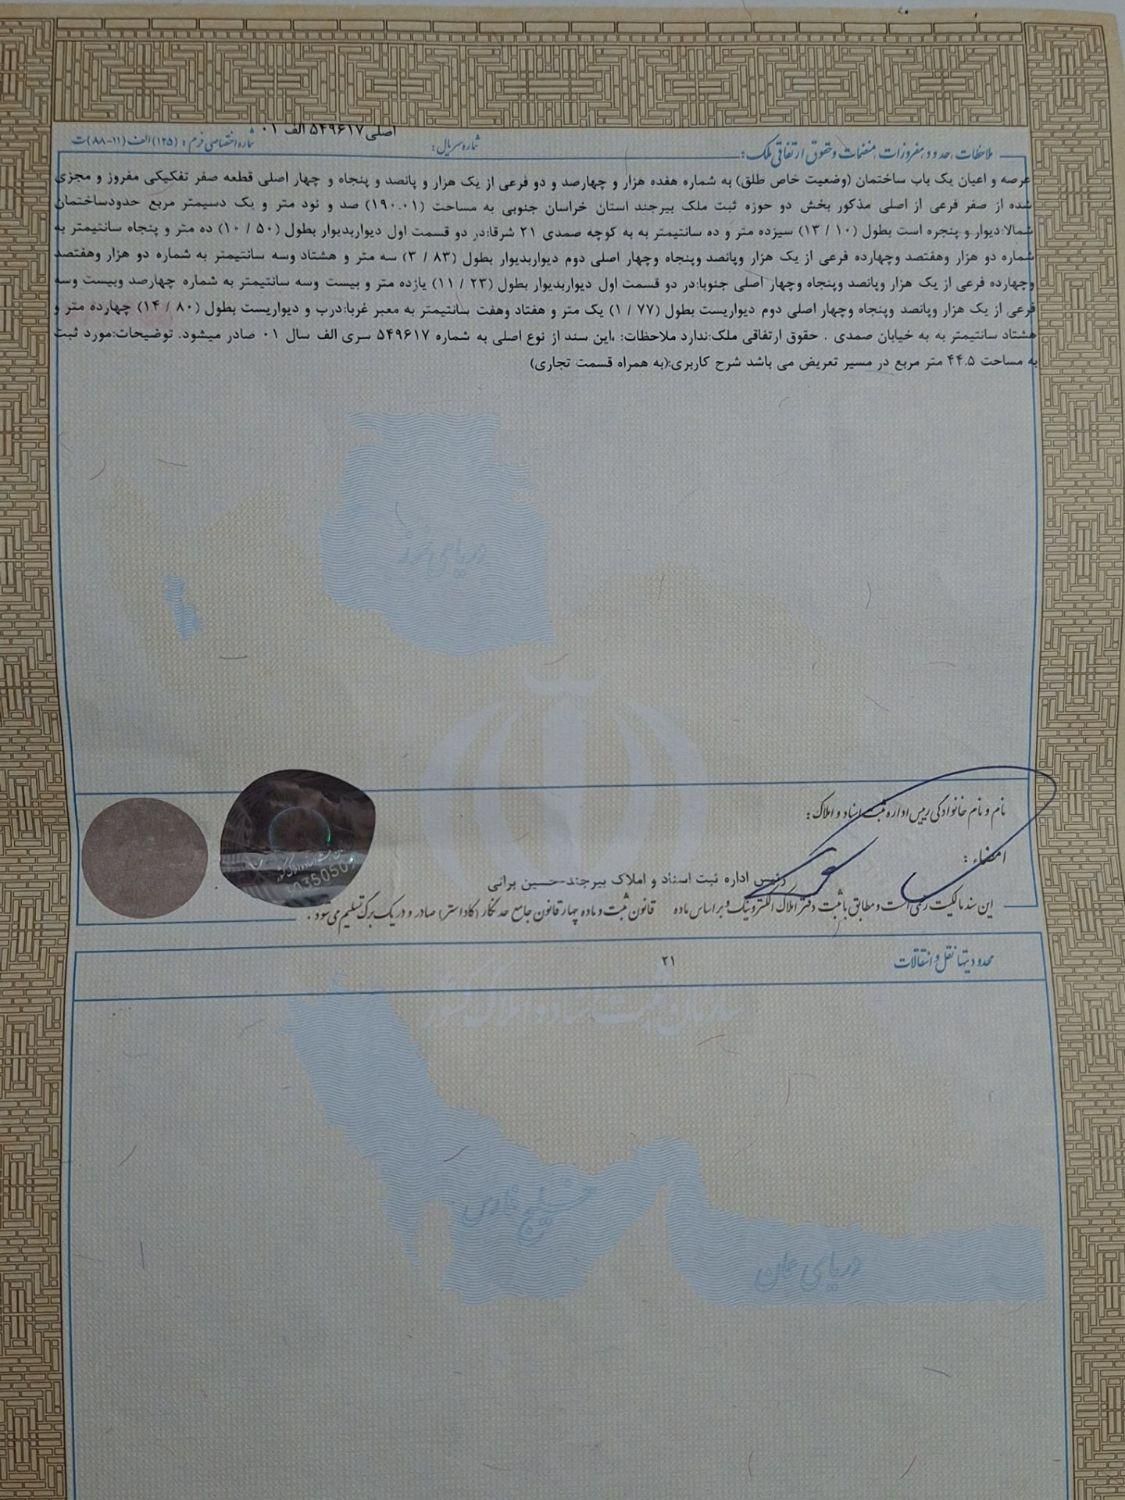 اصلی ۵۴۹۶۱۷ الف ۰۱
ملاحظات، حدود، مفروزات، منضمات و حقوق ارتفاقی ملک: شماره سریال: شماره اختصاصی فرم: (۱۲۵) الف (۱۱-۸۸) ت
عرصه و اعیان یک باب ساختمان (وضعیت خاص طلق) به شماره هفده هزار و چهارصد و دو فرعی از یک هزار و پانصد و پنجاه و چهار اصلی قطعه صفر تفکیکی مفروز و مجزی
شده از صفر فرعی از اصلی مذکور بخش دو حوزه ثبت ملک بیرجند استان خراسان جنوبی به مساحت (۱۹۰.۰۱) صد و نود متر و یک دسیمتر مربع حدودساختمان
شمالا:دیوار و پنجره است بطول (۱۰ / ۱۳) سیزده متر و ده سانتیمتر به به کوچه صمدی ۲۱ شرقا:در دو قسمت اول دیواربدیوار بطول (۵۰ / ۱۰) ده متر و پنجاه سانتیمتر به
شماره دو هزار وهفتصد وچهارده فرعی از یک هزار وپانصد وپنجاه وچهار اصلی دوم دیواربدیوار بطول (۸۳ / ۳) سه متر و هشتاد وسه سانتیمتر به شماره دو هزار وهفتصد
وچهارده فرعی از یک هزار وپانصد وپنجاه وچهار اصلی جنوبا:در دو قسمت اول دیواربدیوار بطول (۲۳ / ۱۱) یازده متر و بیست وسه سانتیمتر به شماره چهارصد وبیست وسه
فرعی از یک هزار وپانصد وپنجاه وچهار اصلی دوم دیواریست بطول (۷۷ / ۱) یک متر و هفتاد وهفت سانتیمتر به معبر غربا:درب و دیواریست بطول (۸۰ / ۱۴) چهارده متر و
هشتاد سانتیمتر به به خیابان صمدی . حقوق ارتفاقی ملک:ندارد ملاحظات: ،این سند از نوع اصلی به شماره ۵۴۹۶۱۷ سری الف سال ۰۱ صادر میشود. توضیحات:مورد ثبت
به مساحت ۴۴.۵ متر مربع در مسیر تعریض می باشد شرح کاربری:(به همراه قسمت تجاری)
دریای خزر
نام و نام خانوادگی رییس اداره ثبت اسناد و املاک:
امضاء:
رئیس اداره ثبت اسناد و املاک بیرجند-حسین یرانی
این سند مالکیت رسمی است و مطابق با ثبت دفتر املاک الکترونیک و بر اساس ماده قانون ثبت و ماده چهار قانون جامع حدنگار (کاداستر) صادر و در یک برگ تسلیم می شود.
محدودیتها، نقل و انتقالات ۲۱
خلیج فارس
دریای عمان